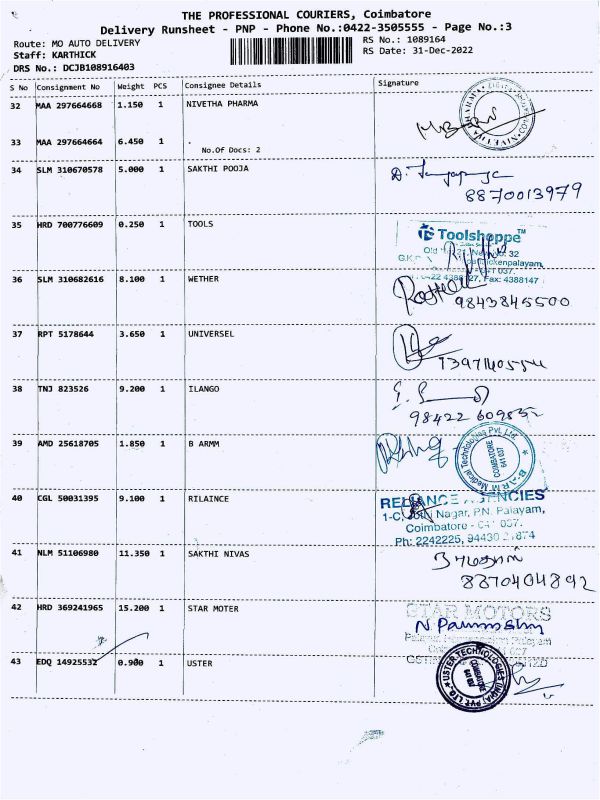 THE PROFESSIONAL COURIERS, Coimbatore
Delivery Runsheet - PNP - Phone No.:0422-3505555 - Page No.:3
Route: MO AUTO DELIVERY RS No.: 1089164
Staff: KARTHICK RS Date: 31-Dec-2022
DRS No.: DCJB108916403
S No Consignment No Weight PCS Consignee Details Signature
32 MAA 297664668 1.150 1 NIVETHA PHARMA
33 MAA 297664664 6.450 1 .
No.Of Docs: 2
34 SLM 310670578 5.000 1 SAKTHI POOJA
8870013979
35 HRD 700776609 0.250 1 TOOLS
Toolshoppe™
36 SLM 310682616 8.100 1 WETHER
9843845500
37 RPT 5178644 3.650 1 UNIVERSEL
38 TNJ 823526 9.200 1 ILANGO
39 AMD 25618705 1.850 1 B ARMM
B-ARM Medical Technologies Pvt. Ltd.
COIMBATORE
641 037
40 CGL 50031395 9.100 1 RILAINCE
RELIANCE AGENCIES
Nagar, P.N. Palayam,
Coimbatore - 641 037.
Ph: 2242225, 94430
41 NLM 51106980 11.350 1 SAKTHI NIVAS
8870404892
42 HRD 369241965 15.200 1 STAR MOTER
STAR MOTORS
43 EDQ 14925532 0.900 1 USTER
USTER TECHNOLOGIES (INDIA) PVT. LTD.
COIMBATORE